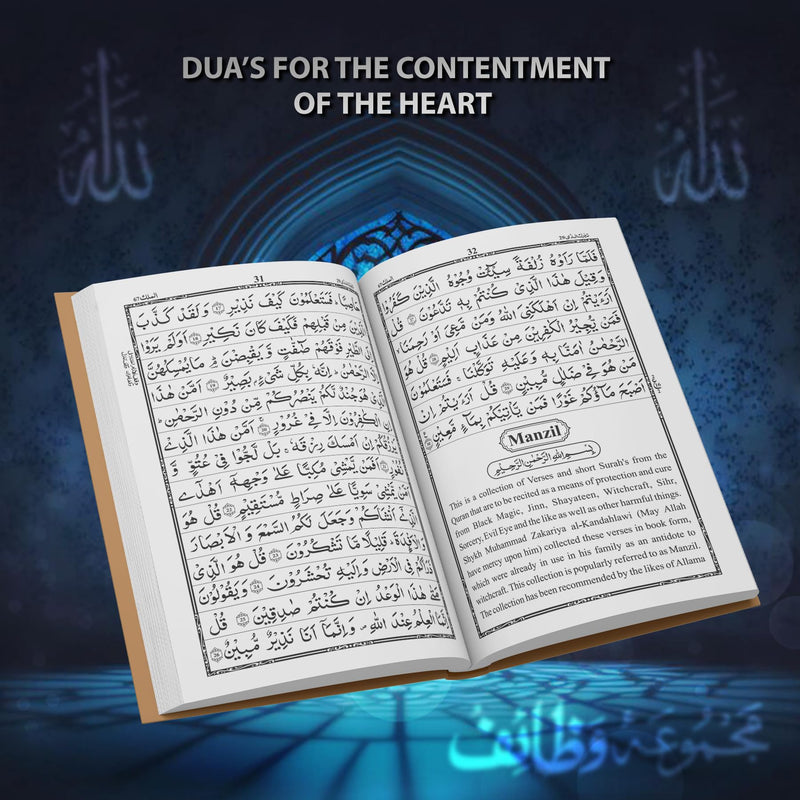 DUA'S FOR THE CONTENTMENT
OF THE HEART
الله
الله
31
الملك ٦٧
حَاصِبًا ؕ فَسَتَعْلَمُوْنَ كَيْفَ نَذِيْرِ ﴿17﴾ وَلَقَدْ كَذَّبَ
الَّذِيْنَ مِنْ قَبْلِهِمْ فَكَيْفَ كَانَ نَكِيْرِ ﴿18﴾ اَوَلَمْ يَرَوْا
اِلَى الطَّيْرِ فَوْقَهُمْ صٰٓفّٰتٍ وَّيَقْبِضْنَ ؕ مَا يُمْسِكُهُنَّ
اِلَّا الرَّحْمٰنُ ؕ اِنَّهٗ بِكُلِّ شَيْءٍۭ بَصِيْرٌ ﴿19﴾ اَمَّنْ هٰذَا
الَّذِيْ هُوَ جُنْدٌ لَّكُمْ يَنْصُرُكُمْ مِّنْ دُوْنِ الرَّحْمٰنِ ؕ
اِنِ الْكٰفِرُوْنَ اِلَّا فِيْ غُرُوْرٍ ﴿20﴾ اَمَّنْ هٰذَا الَّذِيْ
يَرْزُقُكُمْ اِنْ اَمْسَكَ رِزْقَهٗ ۚ بَلْ لَّجُّوْا فِيْ عُتُوٍّ وَّ
نُفُوْرٍ ﴿21﴾ اَفَمَنْ يَّمْشِيْ مُكِبًّا عَلٰى وَجْهِهٖٓ اَهْدٰٓى
اَمَّنْ يَّمْشِيْ سَوِيًّا عَلٰى صِرَاطٍ مُّسْتَقِيْمٍ ﴿22﴾ قُلْ هُوَ
الَّذِيْٓ اَنْشَاَكُمْ وَجَعَلَ لَكُمُ السَّمْعَ وَ الْاَبْصَارَ
وَالْاَفْئِدَةَ ؕ قَلِيْلًا مَّا تَشْكُرُوْنَ ﴿23﴾ قُلْ هُوَ الَّذِيْ
ذَرَاَكُمْ فِي الْاَرْضِ وَاِلَيْهِ تُحْشَرُوْنَ ﴿24﴾ وَيَقُوْلُوْنَ
مَتٰى هٰذَا الْوَعْدُ اِنْ كُنْتُمْ صٰدِقِيْنَ ﴿25﴾ قُلْ
اِنَّمَا الْعِلْمُ عِنْدَ اللّٰهِ ۪ وَاِنَّمَآ اَنَا نَذِيْرٌ مُّبِيْنٌ ﴿26﴾
32
الملك ٦٧
فَلَمَّا رَاَوْهُ زُلْفَةً سِيْٓـَٔتْ وُجُوْهُ الَّذِيْنَ كَفَرُوْا
وَقِيْلَ هٰذَا الَّذِيْ كُنْتُمْ بِهٖ تَدَّعُوْنَ ﴿27﴾ قُلْ
اَرَءَيْتُمْ اِنْ اَهْلَكَنِيَ اللّٰهُ وَمَنْ مَّعِيَ اَوْ رَحِمَنَا ۙ
فَمَنْ يُّجِيْرُ الْكٰفِرِيْنَ مِنْ عَذَابٍ اَلِيْمٍ ﴿28﴾ قُلْ هُوَ
الرَّحْمٰنُ اٰمَنَّا بِهٖ وَعَلَيْهِ تَوَكَّلْنَا ۚ فَسَتَعْلَمُوْنَ
مَنْ هُوَ فِيْ ضَلٰلٍ مُّبِيْنٍ ﴿29﴾ قُلْ اَرَءَيْتُمْ اِنْ
اَصْبَحَ مَآؤُكُمْ غَوْرًا فَمَنْ يَّاْتِيْكُمْ بِمَآءٍ مَّعِيْنٍ ﴿30﴾
Manzil
بِسْمِ اللّٰهِ الرَّحْمٰنِ الرَّحِيْمِ
This is a collection of Verses and short Surah's from the
Quran that are to be recited as a means of protection and cure
from Black Magic, Jinn, Shayateen, Witchcraft, Sihr,
Sorcery, Evil Eye and the like as well as other harmful things.
Shykh Muhammad Zakariya al-Kandahlawi (May Allah
have mercy upon him) collected these verses in book form,
which were already in use in his family as an antidote to
witchcraft. This collection is popularly referred to as Manzil.
The collection has been recommended by the likes of Allama
مَجْمُوعَہ وَظَائِف